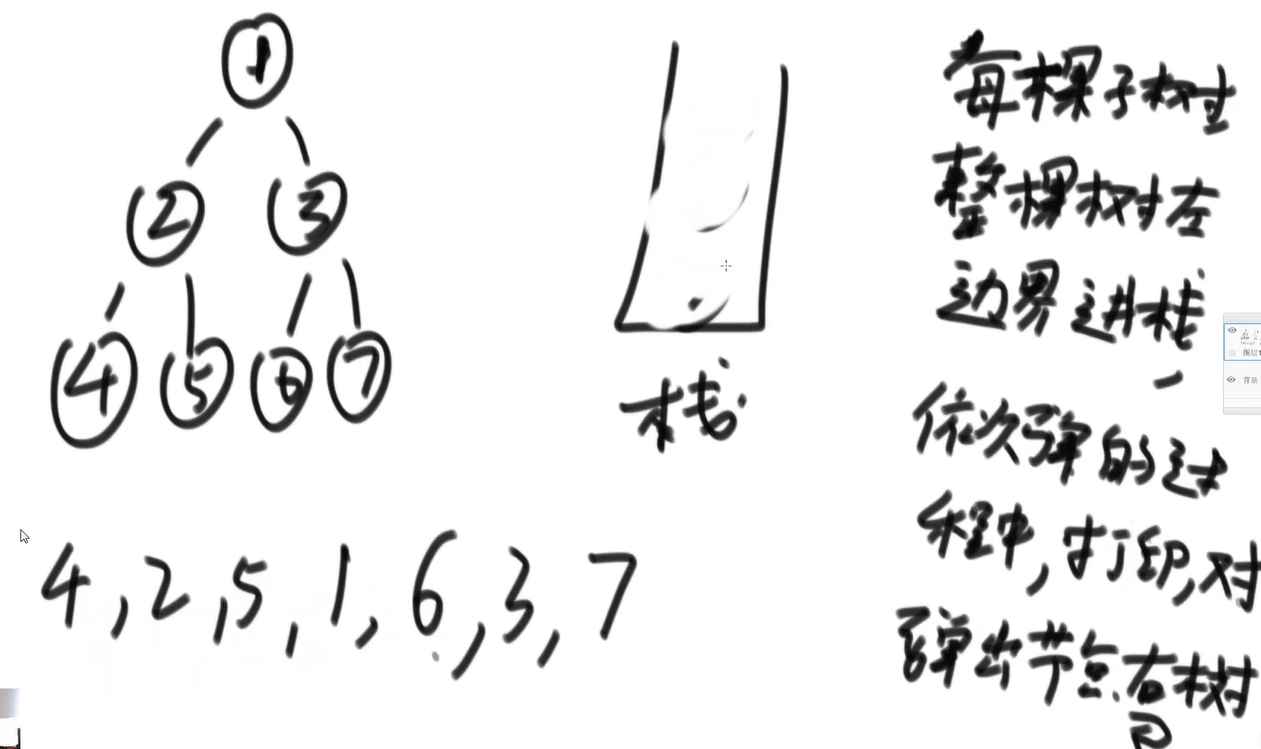 1
2
3
4
5
6
7
栈
4,2,5,1,6,3,7
每棵子树
整棵树左
边界进栈,
依次弹的过
程中,打印,对
弹出节点右树
图层1
背景